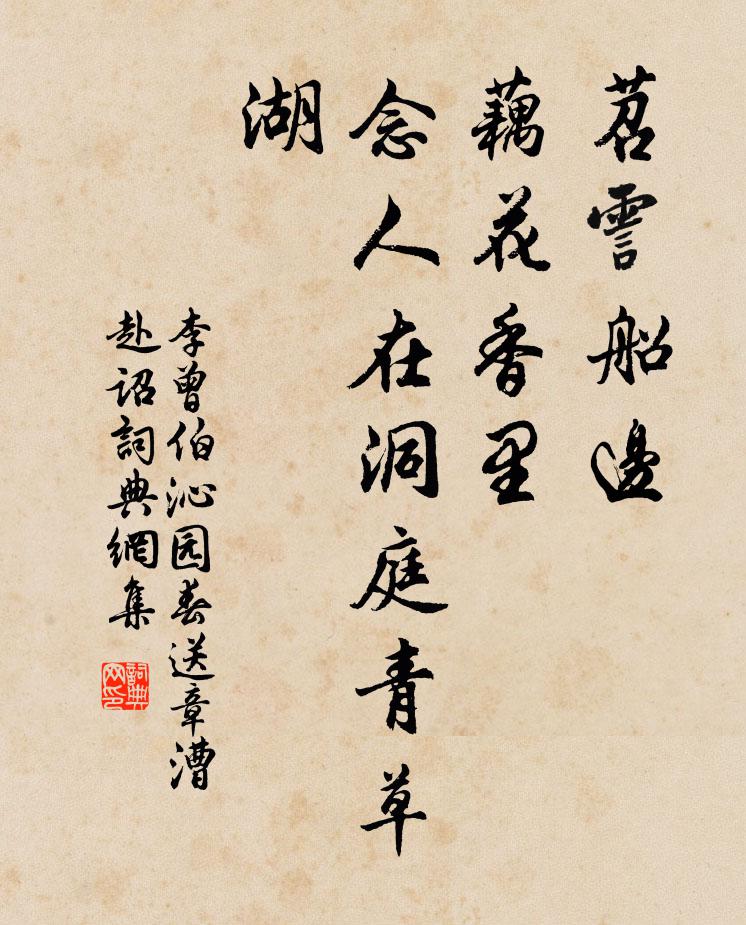 苕霅船邊
藕花香里
念人在洞庭青草
湖
李曾伯沁园春送章漕
赴詔詞典網集
詞典网印